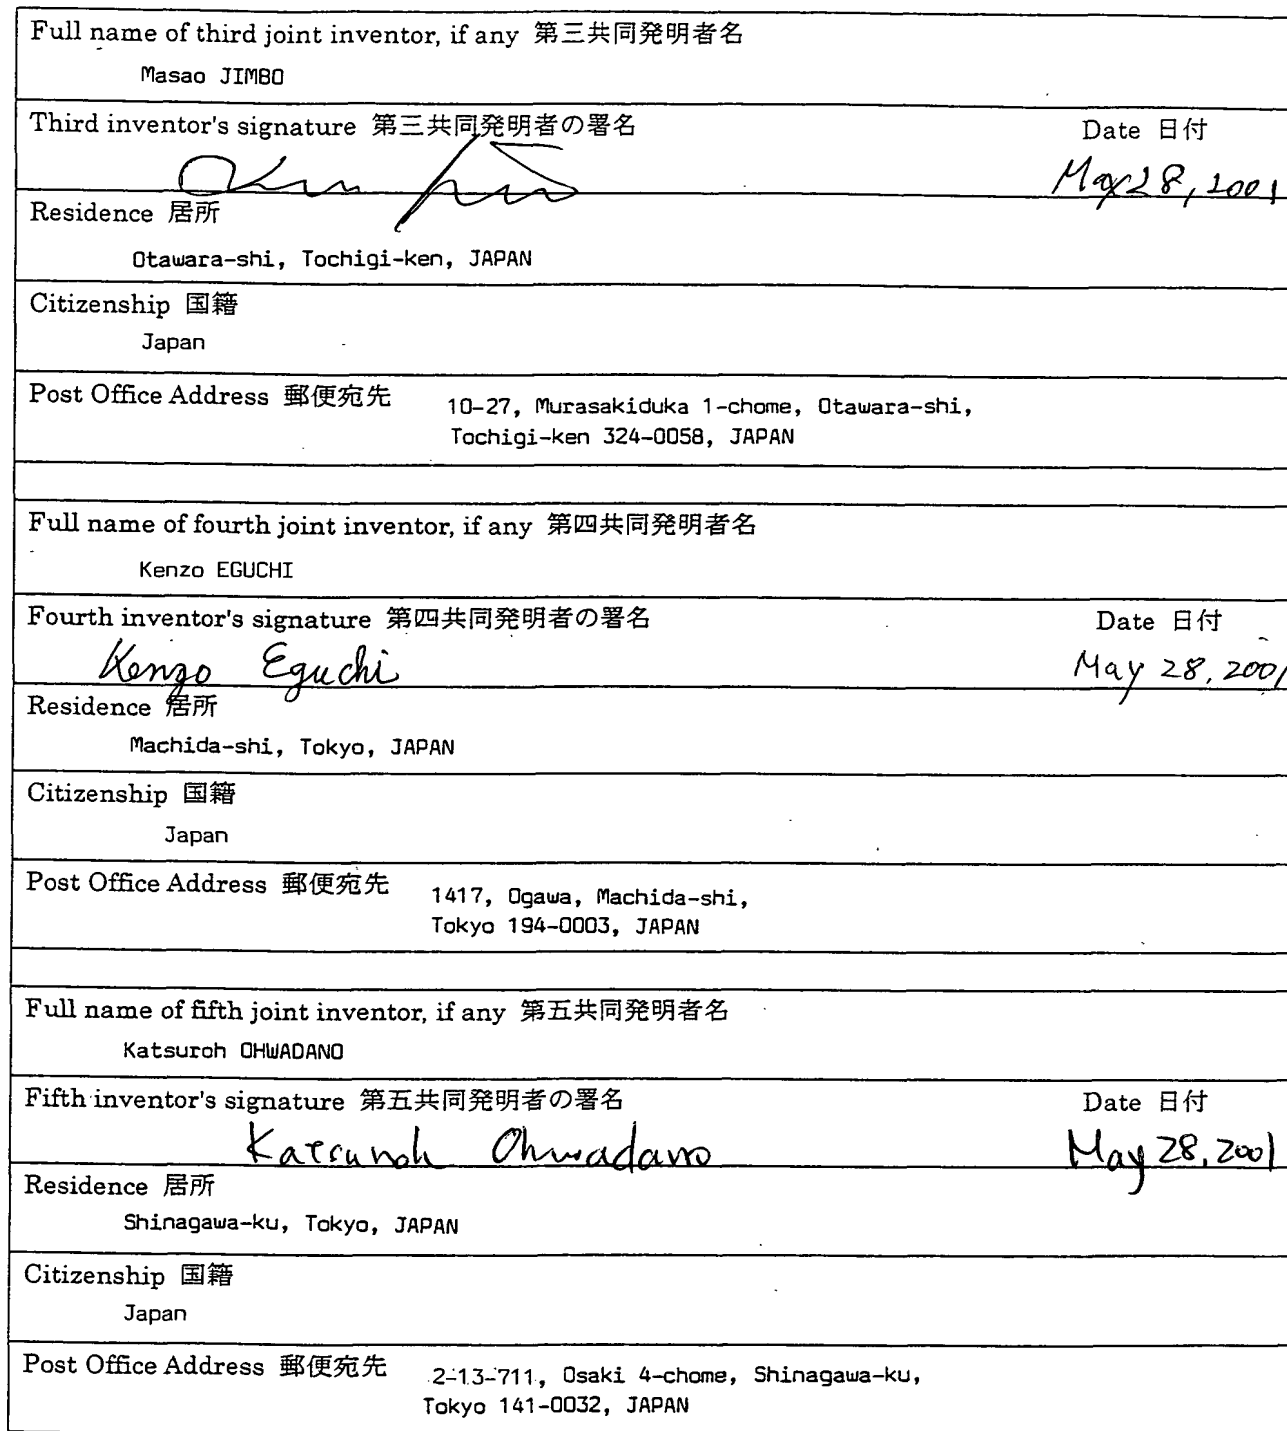 Full name of third joint inventor, if any 第三共同発明者名
Masao JIMBO
Third inventor's signature 第三共同発明者の署名 Date 日付
May 28, 2001
Residence 居所
Otawara-shi, Tochigi-ken, JAPAN
Citizenship 国籍
Japan
Post Office Address 郵便宛先 10-27, Murasakiduka 1-chome, Otawara-shi,
Tochigi-ken 324-0058, JAPAN
Full name of fourth joint inventor, if any 第四共同発明者名
Kenzo EGUCHI
Fourth inventor's signature 第四共同発明者の署名 Date 日付
Kenzo Eguchi May 28, 2001
Residence 居所
Machida-shi, Tokyo, JAPAN
Citizenship 国籍
Japan
Post Office Address 郵便宛先 1417, Ogawa, Machida-shi,
Tokyo 194-0003, JAPAN
Full name of fifth joint inventor, if any 第五共同発明者名
Katsuroh OHWADANO
Fifth inventor's signature 第五共同発明者の署名 Date 日付
Katsuroh Ohwadano May 28, 2001
Residence 居所
Shinagawa-ku, Tokyo, JAPAN
Citizenship 国籍
Japan
Post Office Address 郵便宛先 2-13-711, Osaki 4-chome, Shinagawa-ku,
Tokyo 141-0032, JAPAN